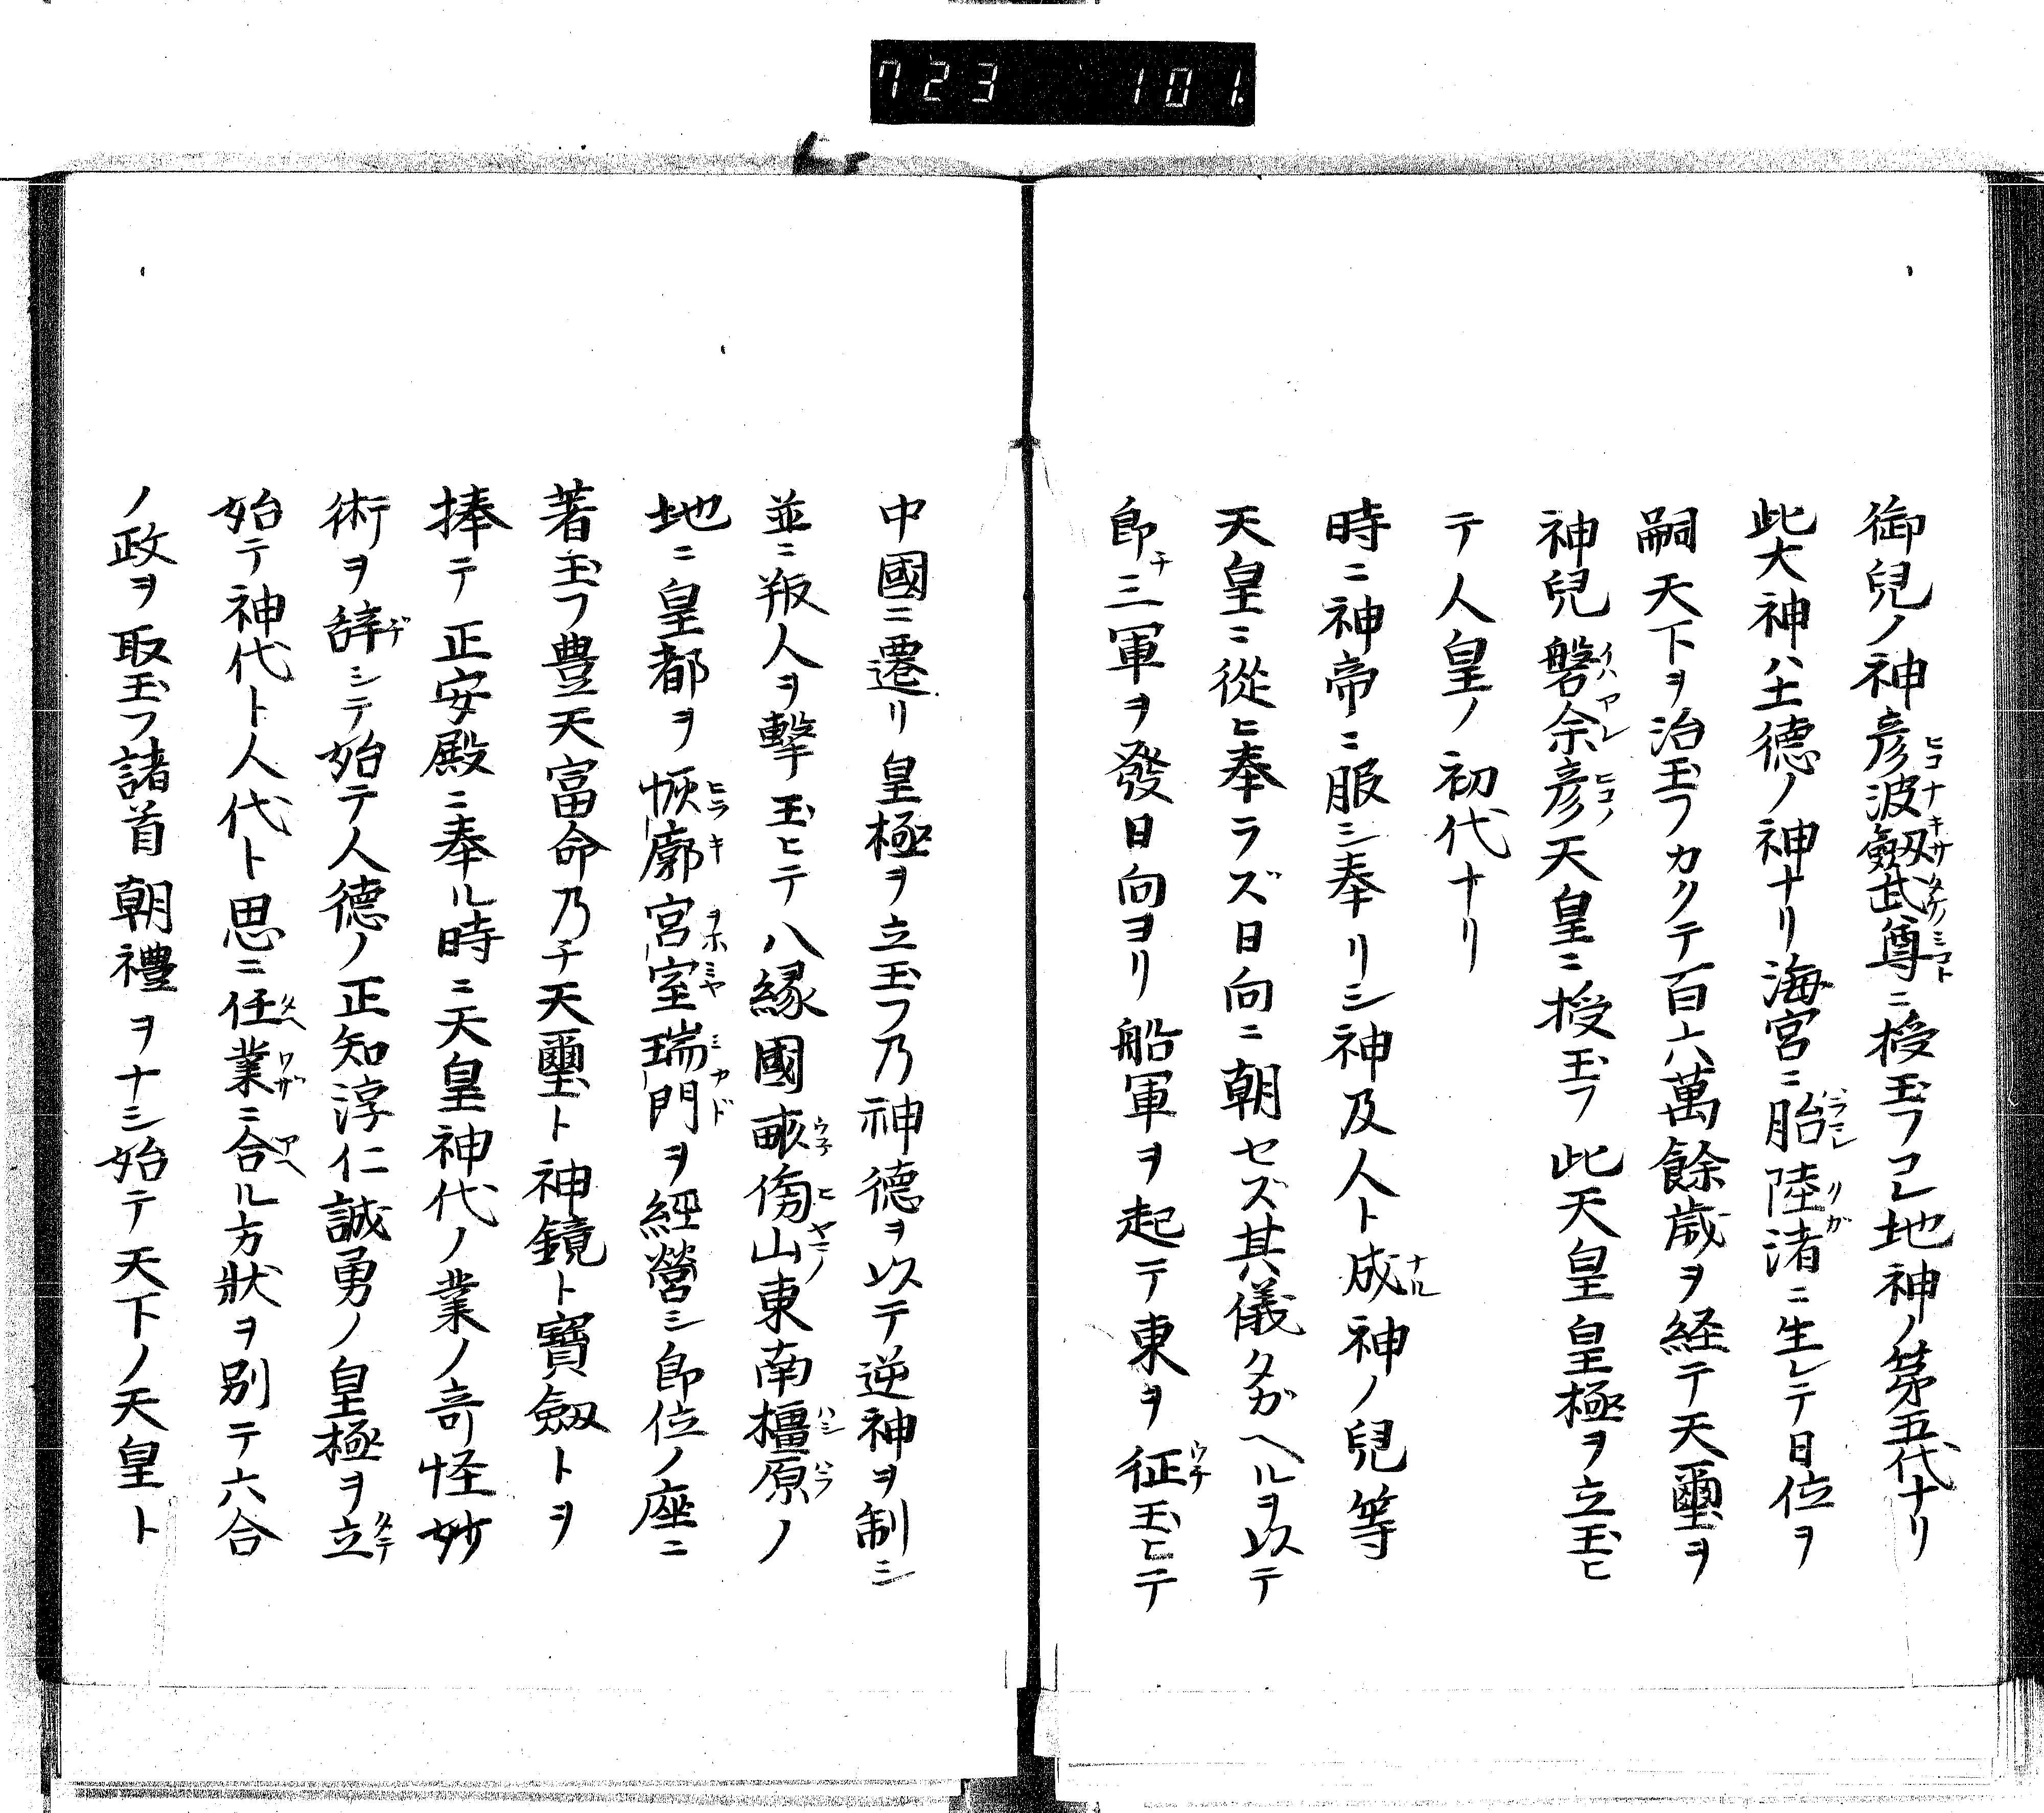 723 101.
御兒ノ神彦波劔武尊ニ授玉フコレ地神ノ第五代ナリ
此大神ハ土德ノ神ナリ海宮ニ胎陸渚ニ生レテ日位ヲ
嗣天下ヲ治玉フカクテ百六萬餘歳ヲ経テ天璽ヲ
神兒磐余彦天皇ニ授玉フ此天皇皇極ヲ立玉ヒ
テ人皇ノ初代ナリ
時ニ神帝ニ服シ奉リシ神及人ト成神ノ兒等
天皇ニ從ヒ奉ラズ日向ニ朝セズ其儀タガヘルヲ以テ
即チ三軍ヲ發日向ヨリ船軍ヲ起テ東ヲ征玉ヒテ
中國ニ遷リ皇極ヲ立玉フ乃神德ヲ以テ逆神ヲ制シ
並ニ叛人ヲ擊玉ヒテ八縁國畝傍山東南橿原ノ
地ニ皇都ヲ恢廓宮室瑞門ヲ經營シ即位ノ座ニ
著玉フ豊天富命乃チ天璽ト神鏡ト寶劔トヲ
捧テ正安殿ニ奉ル時ニ天皇神代ノ業ノ奇怪妙
術ヲ辞シテ始テ人德ノ正知淳仁誠勇ノ皇極ヲ立
始テ神代ト人代ト思ニ任業ニ合ル方狀ヲ別テ六合
ノ政ヲ取玉フ諸首朝禮ヲナシ始テ天下ノ天皇ト